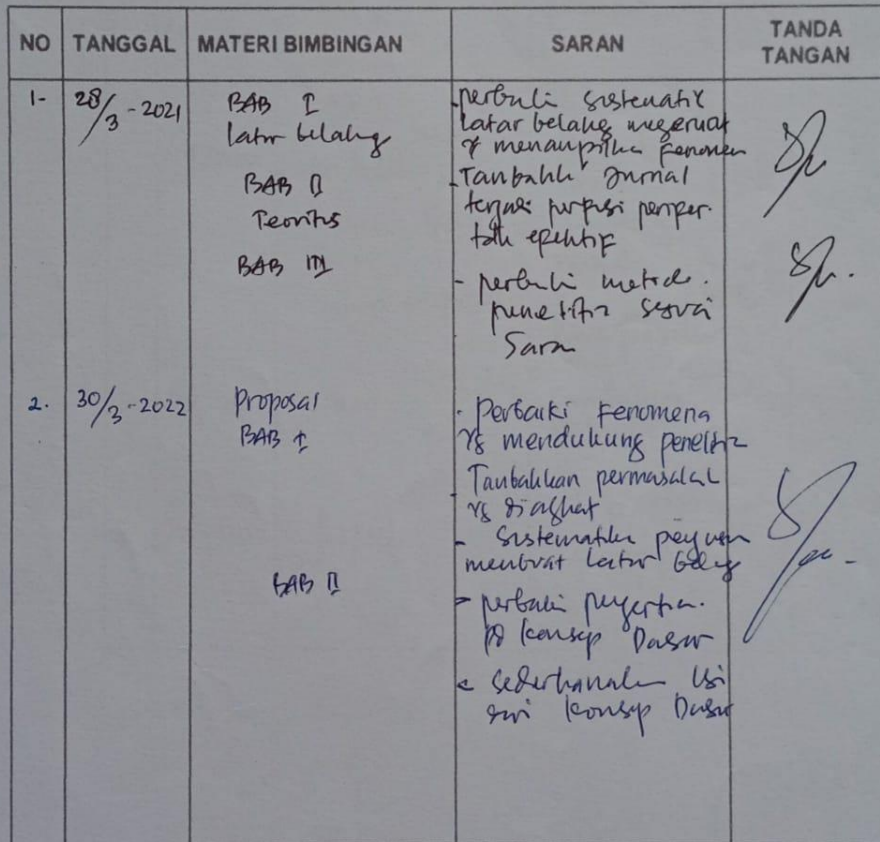 NO TANGGAL MATERI BIMBINGAN SARAN TANDA TANGAN
1- 28/3-2021 BAB I
latar belakg
BAB II
Teoritis
BAB III
- perbaiki sistematik
latar belakg
yg menampilka fenomen
- Tambahk Jurnal
efektif
- perbaiki metode.
penelitia sesuai
Saran
2. 30/3-2022 Proposal
BAB I
BAB II
- Perbaiki Fenomena
yg mendukung penelitia
- Tambahkan permasalah
yg diagkat
- Sistematika
membuat latar belag
- perbaiki pegertia.
pd konsep Dasar
- sederhanaka isi
dari konsep Dasar